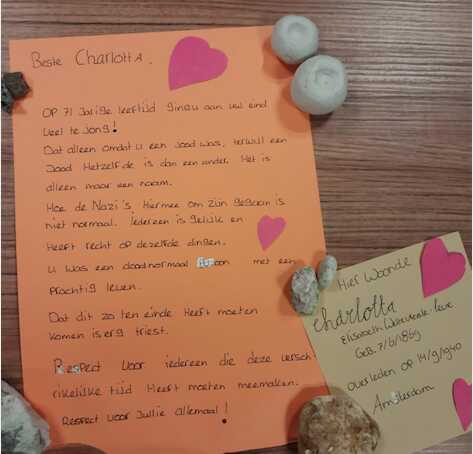 Beste Charlotta.
OP 71 Jarige leeftijd ging u aan uw eind
Veel te Jong!
Dat alleen omdat u een Jood was, terwijl een
Jood Hetzelfde is dan een ander. Het is
alleen maar een naam.
Hoe de Nazi's Hiermee om zijn gegaan is
niet normaal. Iedereen is gelijk en
Heeft recht op dezelfde dingen.
U was een doodnormaal met een
Prachtig leven.
Dat dit zo ten einde Heeft moeten
Komen is erg triest.
Respect voor iedereen die deze versch-
rikelijke tijd Heeft moeten meemaken.
Respect voor Jullie allemaal!
Hier Woonde
Charlotta
Elisabeth
Geb. 7/6/1869
Overleden op 14/9/1940
Amsterdam